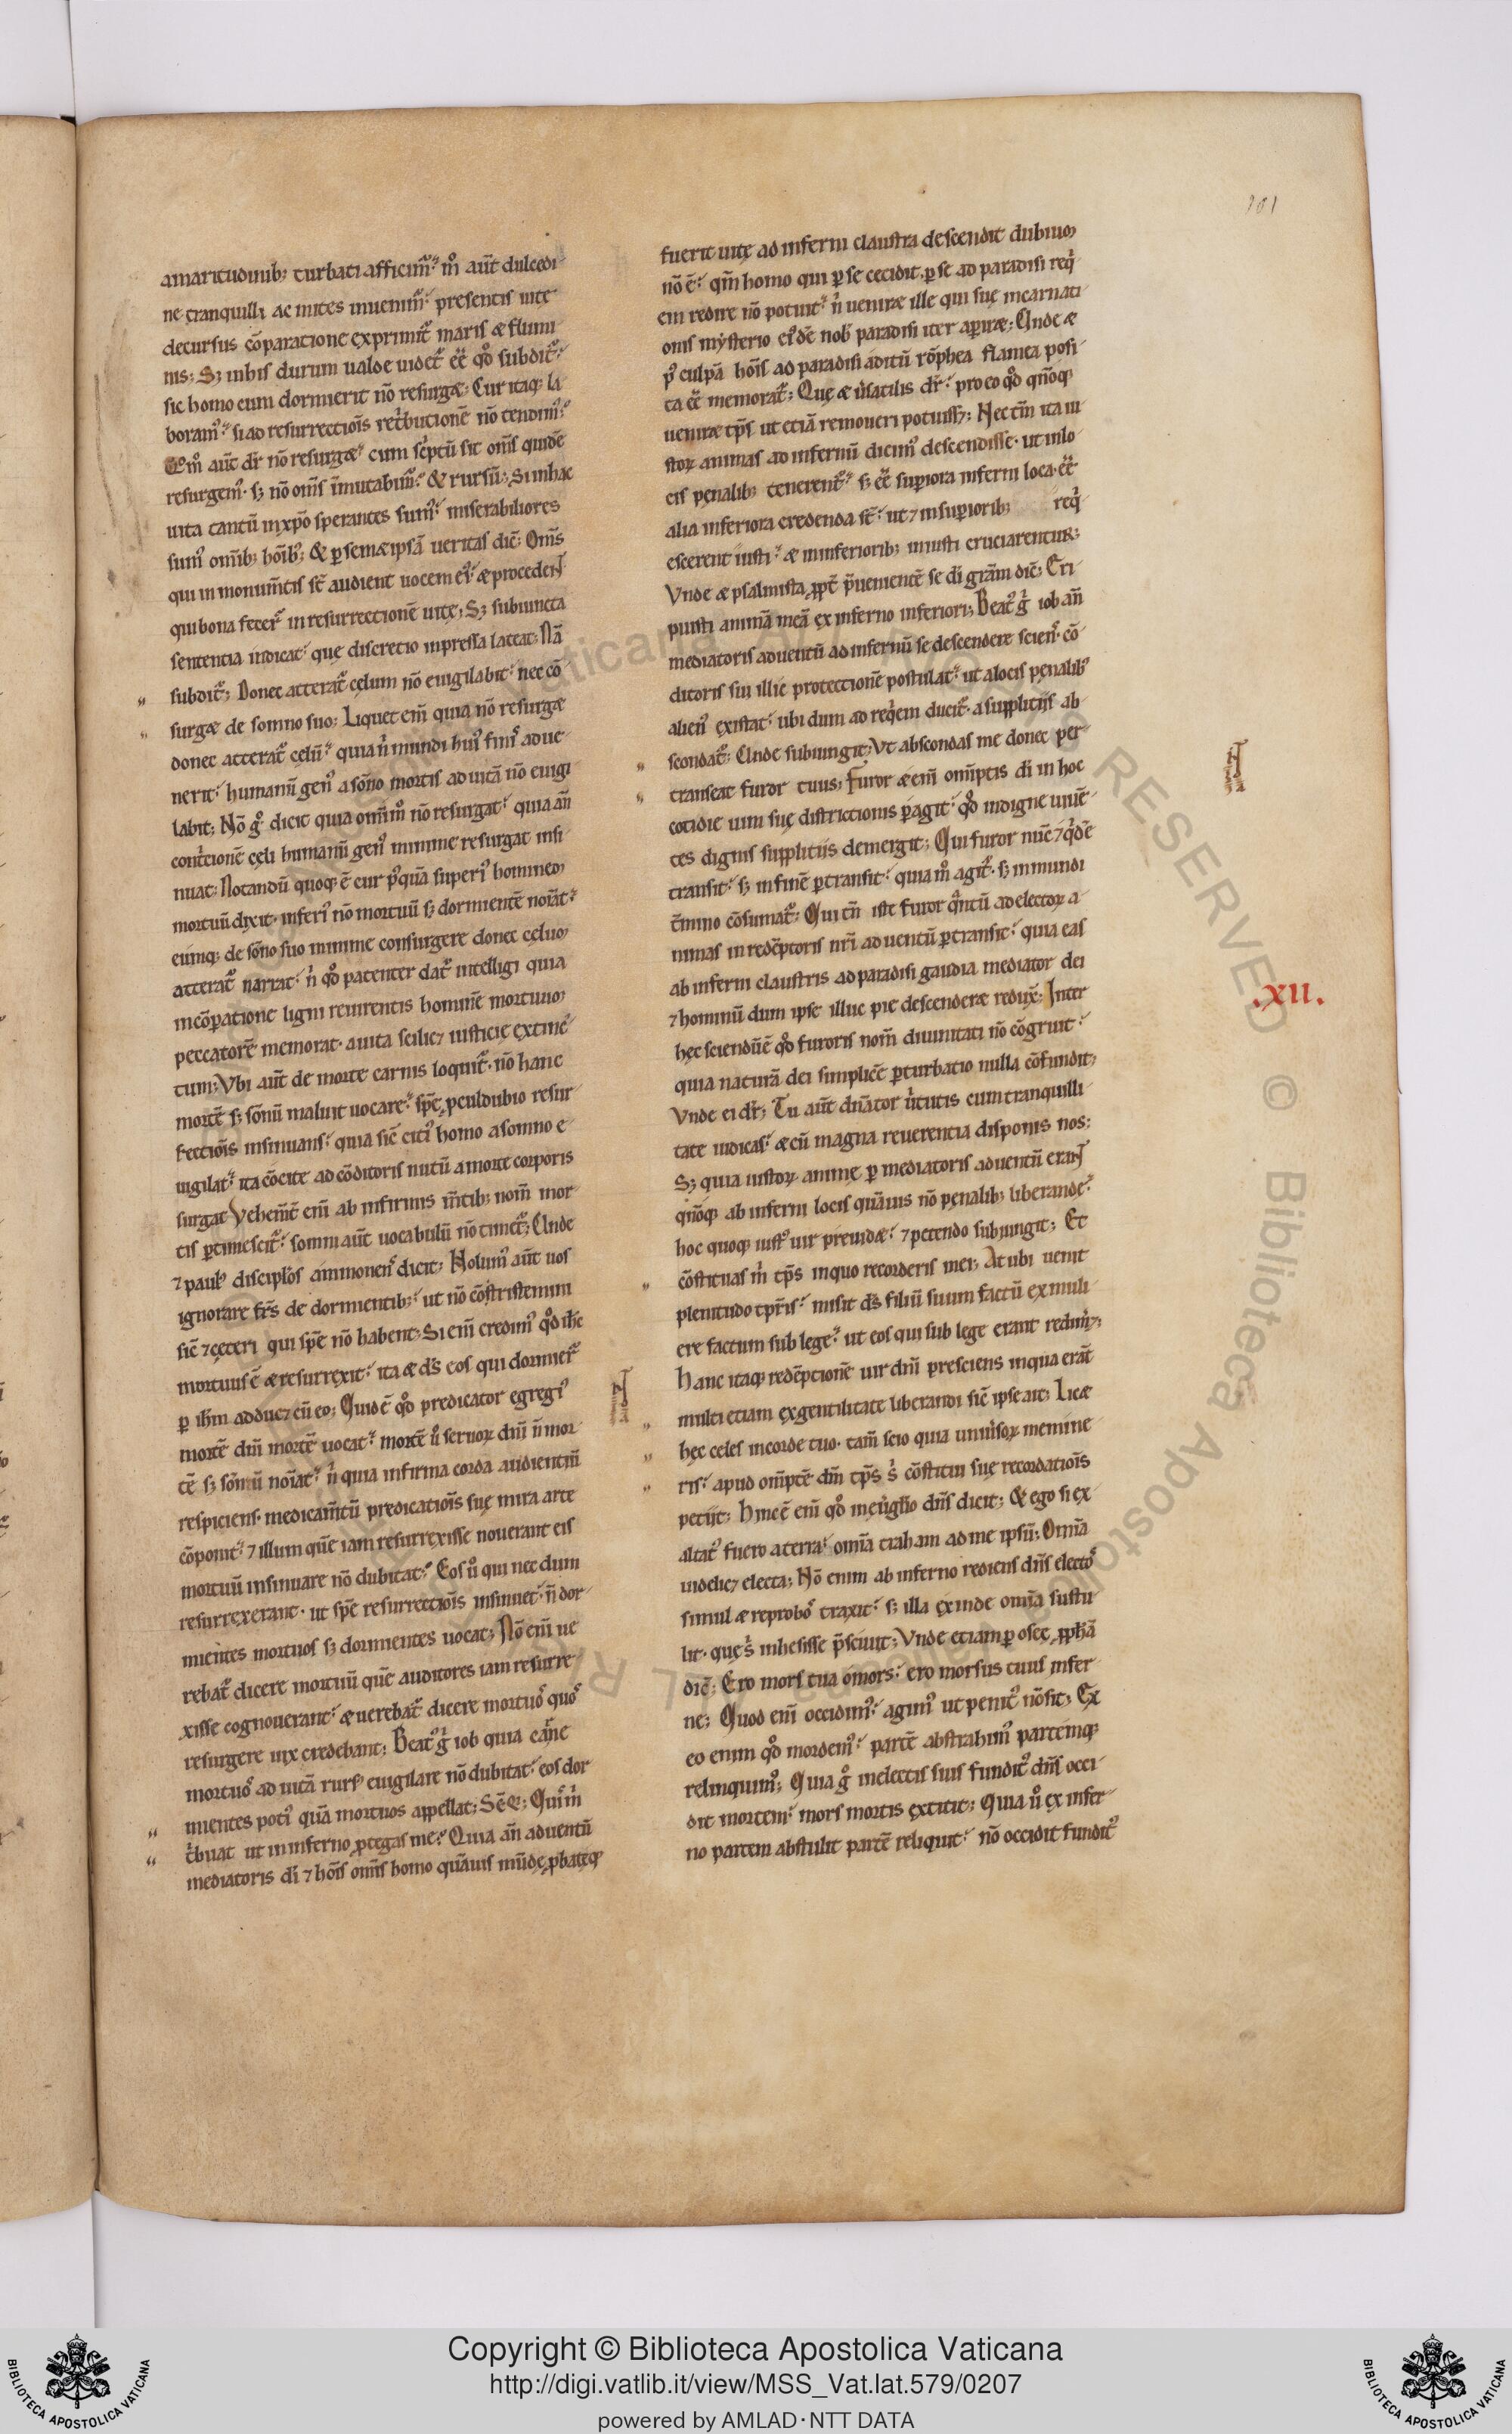 101
amaritudinib; turbati afficim᷒. m̊ aut̄ dulcedi-
ne tranquilli ac mites inuenim᷒. presentis uite
decursus cōparatione exprimit᷒ maris & flumi-
nis; S; inhis durum ualde uidet᷒ eē qđ subdit᷒.
sic homo cum dormierit nō resurg&; Cur itaq; la-
boram᷒. si ad resurrectiōis ret'butionē nō tendim᷒.
Quom̊ aut̄ dr̄ nō resurg&. cum sc'ptū sit om̄s quidē
resurgem᷒. s; nō om̄s īmutabim᷒. & rursū; Si in hac
uita tantū inxp̄o sperantes sum᷒. miserabiliores
sum᷒ om̄ib; hōib᷒; & ꝑ sem&ipsā ueritas dic̄; Om̄s
qui in monum̄tis st̄ audient uocem ei᷒. & procedent
qui bona fecer̄ in resurrectionē uite; S; subiuncta
sententia indicat. que discretio inpressa lateat; Nā
subdit᷒; Donec atterat᷒ celum nō euigilabit. nec cō-
surg& de somno suo; Liquet em̄ quia nō resurg&
donec atterat᷒ celū. quia n' mundi hui᷒ finis adue-
nerit. humanū gen᷒ a sōno mortis ad uitā nō euigi-
labit; Nō g̊ dicit quia omīm̊ nō resurgat. quia an̄
contͥcionē celi humanū gen᷒ minime resurgat insi-
nuat; Notandū quoq; ē cur p᷒quā superi᷒ hominem
mortuū dixit. inferi᷒ nō mortuū s; dormientē noīat.
eūnq; de sōno suo minime consurgere donec celum
atterat᷒ narrat. n' qđ patenter dat᷒ intelligi quia
incōparatione ligni reuirentis hominē mortuum
peccatorē memorat. a uita scilic& iusticie extinc-
tum; Vbi aut̄ de morte carnis loquit᷒. nō hanc
mortē s; sōnū maluit uocare. spē ꝓculdubio resur-
rectiōis insinuans. quia sic̄ citi᷒ homo a somno e-
uigilat. ita cōcite ad cōditoris nutū a morte corporis
surgat Vehem̄t em̄ ab infirmis m̄tib; nom̄ mor-
tis ꝑtimescit᷒. somni aut̄ uocabulū nō timet᷒; Unde
& paul᷒ disciplōs ammonens dicit; Nolum᷒ aut̄ uos
ignorare frs̄ de dormientib;. ut nō cōstristemini
sic̄ & ceteri qui spē nō habent; Si em̄ credim᷒ qđ ih̄c
mortuus ē & resurrexit. ita & ds̄ eos qui dormier̄
ꝑ ih̄m adduc& cū eo; Quid ē qđ predicator egregi᷒
mortē dn̄i mortē uocat. mortē u᷒ seruoꝝ dn̄i n̄ mor-
tē s; sōnū noīat. n' quia infirma corda audientiū
respiciens. medicam̄tū predicatiōis sue mira arte
cōponit. & illum quē iam resurrexisse nouerant eis
mortuū insinuare nō dubitat. Eos u᷒ qui nec dum
resurrexerant. ut spē resurrectiōis insinuet. n̄ dor-
mientes mortuos s; dormientes uocat; Nō em̄ ue-
rebat᷒ dicere mortuū quē auditores iam resurre-
xisse cognouerant. & uerebat᷒ dicere mortuos quos
resurgere uix credebant; Beat᷒ g' iob quia carne
mortuos ad uitā rurs᷒ euigilare nō dubitat. eos dor-
mientes poti᷒ quā mortuos appellat; Seq̄; Quis m'
t'buat ut in inferno ꝓtegas me. Quia an̄ aduentū
mediatoris di & hōis om̄is homo quāuis mūde ꝓbateq;
fuerit uite ad inferni claustra descendit dubium
nō ē. qm̄ homo qui ꝑ se cecidit. ꝑ se ad paradisi req'-
em redire nō potuit. n' uenir& ille qui sue incarnati-
onis mysterio ei᷒dē nob̄ paradisi iter aꝑir&; Unde &
p᷒ culpā hōis ad paradisi aditū rōphea flamea posi-
ta eē memorat᷒; Que & u'satilis dr̄. pro eo qđ qn̄oq;
uenir& tp̄s ut etiā remoueri potuiss&; Nec tm̄ ita iu-
stoꝝ animas ad infernū dicim᷒ descendisse. ut in lo-
cis penalib; tenerent᷒. s; eē suꝑiora inferni loca. eē
alia inferiora credenda st̄. ut & in suꝑiorib; req'-
escerent iusti. & in inferiorib; iniusti cruciarentur;
Vnde & psalmista ꝓpt̄ p̄uenientē se di gr̄am dic̄; Eri-
puisti animā meā ex inferno inferiori; Beat᷒ g' iob an̄
mediatoris aduentū ad infernū se descendere sciens. cō-
ditoris sui illic protectionē postulat. ut a locis penalib᷒
alien᷒ existat. ubi dum ad req'em ducit᷒. a suppliciis ab-
scondat᷒; Unde subiungit; Vt abscondas me donec per-
transeat furor tuus; Furor &em̄ om̄ptis di in hoc
cotidie uim sue districtionis ꝑagit. qđ indigne uiuē-
tes dignis suppliciis demergit; Qui furor nunc & q'dē
transit. s; in finē ꝑtransit. quia m̊ agit᷒. s; in mundi
t̄mino cōsumat᷒; Qui tn̄ iste furor quantū ad electoꝝ a-
nimas in redēptoris nr̄i aduentū ꝑtransit. quia eas
ab inferni claustris ad paradisi gaudia mediator dei
& hominū dum ipse illuc pie descender& redux̄; Inter
.xii.
hec sciendū ē qđ furoris nom̄ diuinitati nō cōgruit.
quia naturā dei simplicē ꝑturbatio nulla cōfundit;
Vnde ei dr̄; Tu aut̄ dn̄ator u'tutis cum tranquilli-
tate iudicas. & cū magna reuerentia disponis nos;
S; quia iustoꝝ anime ꝑ mediatoris aduentū erant
qn̄oq; ab inferni locis quāuis nō penalib; liberande.
hoc quoq; iust᷒ uir preuid&. & petendo subiungit; Et
cōstituas m' tp̄s in quo recorderis mei; At ubi uenit
plenitudo tp̄ris. misit ds̄ filiū suum factū ex muli-
ere factum sub lege. ut eos qui sub lege erant redim'&;
Hanc itaq; redēptionē uir dn̄i presciens in qua erāt
multi etiam ex gentilitate liberandi sic̄ ipse ait; Lic&
hec celes in corde tuo. tam̄ scio quia uniu'soꝝ memine-
ris. apud om̄ptē dm̄ tp̄s s' cōstitui sue recordatiōis
petiit; Hinc ē em̄ qđ in eu'glio dn̄s dicit; & ego si ex-
altat᷒ fuero a terra. omīa traham ad me ipsū; Omīa
uidelic& electa; Nō enim ab inferno rediens dn̄s electos
simul & reprobos traxit. s; illa exinde omīa sustu-
lit. que s' inhesisse p̄sciuit; Vnde etiam ꝑ osee ꝓph̄ā
dic̄; Ero mors tua omors. ero morsus tuus infer-
ne; Quod em̄ occidim᷒. agim᷒ ut penit᷒ nō sit; Ex
eo enim qđ mordem᷒. partē abstrahim᷒ partemq;
relinquim᷒; Quia g̊ in electis suis fundit᷒ dn̄s occi-
dit mortem. mors mortis extitit; Quia u᷒ ex infer-
no partem abstulit partē reliquit. nō occidit fundit᷒
Copyright © Biblioteca Apostolica Vaticana
http://digi.vatlib.it/view/MSS_Vat.lat.579/0207
powered by AMLAD·NTT DATA
BIBLIOTECA APOSTOLICA VATICANA
BIBLIOTECA APOSTOLICA VATICANA